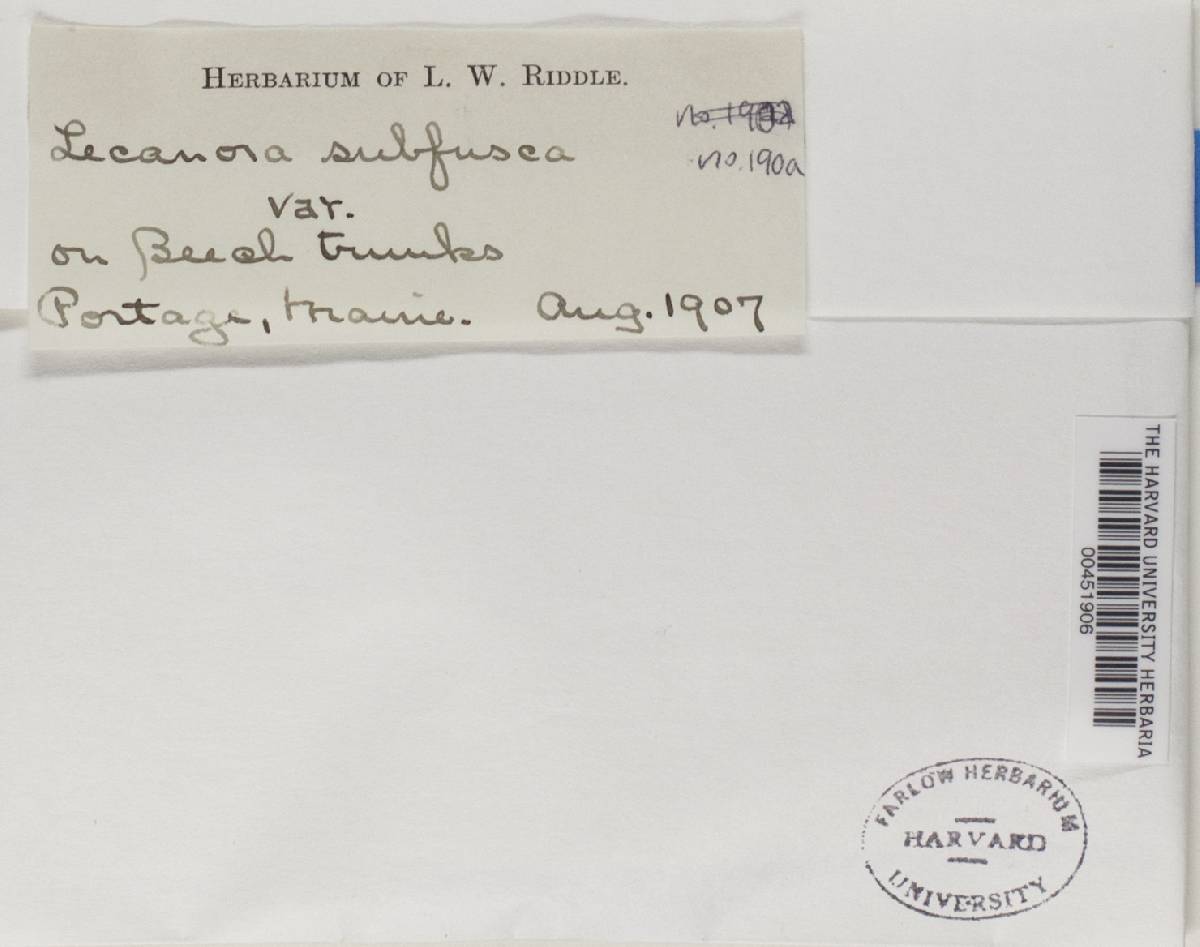 HERBARIUM OF L. W. RIDDLE.
no. 190a
Lecanora subfusca
var.
on Beech trunks
Portage, Maine. Aug. 1907
THE HARVARD UNIVERSITY HERBARIA
00451906
FARLOW HERBARIUM
HARVARD
UNIVERSITY